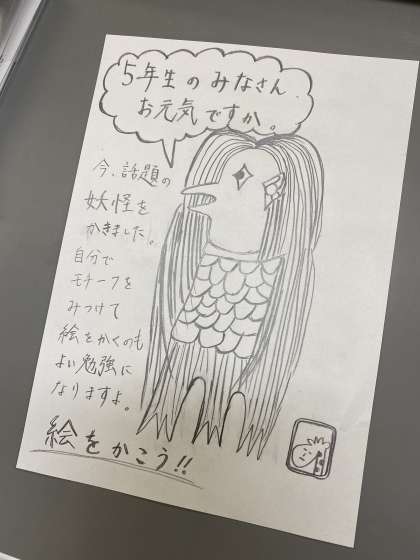 5年生のみなさん
お元気ですか。
今、話題の
妖怪を
かきました。
自分で
モチーフを
みつけて
絵をかくのも
よい勉強に
なりますよ。
絵をかこう!!